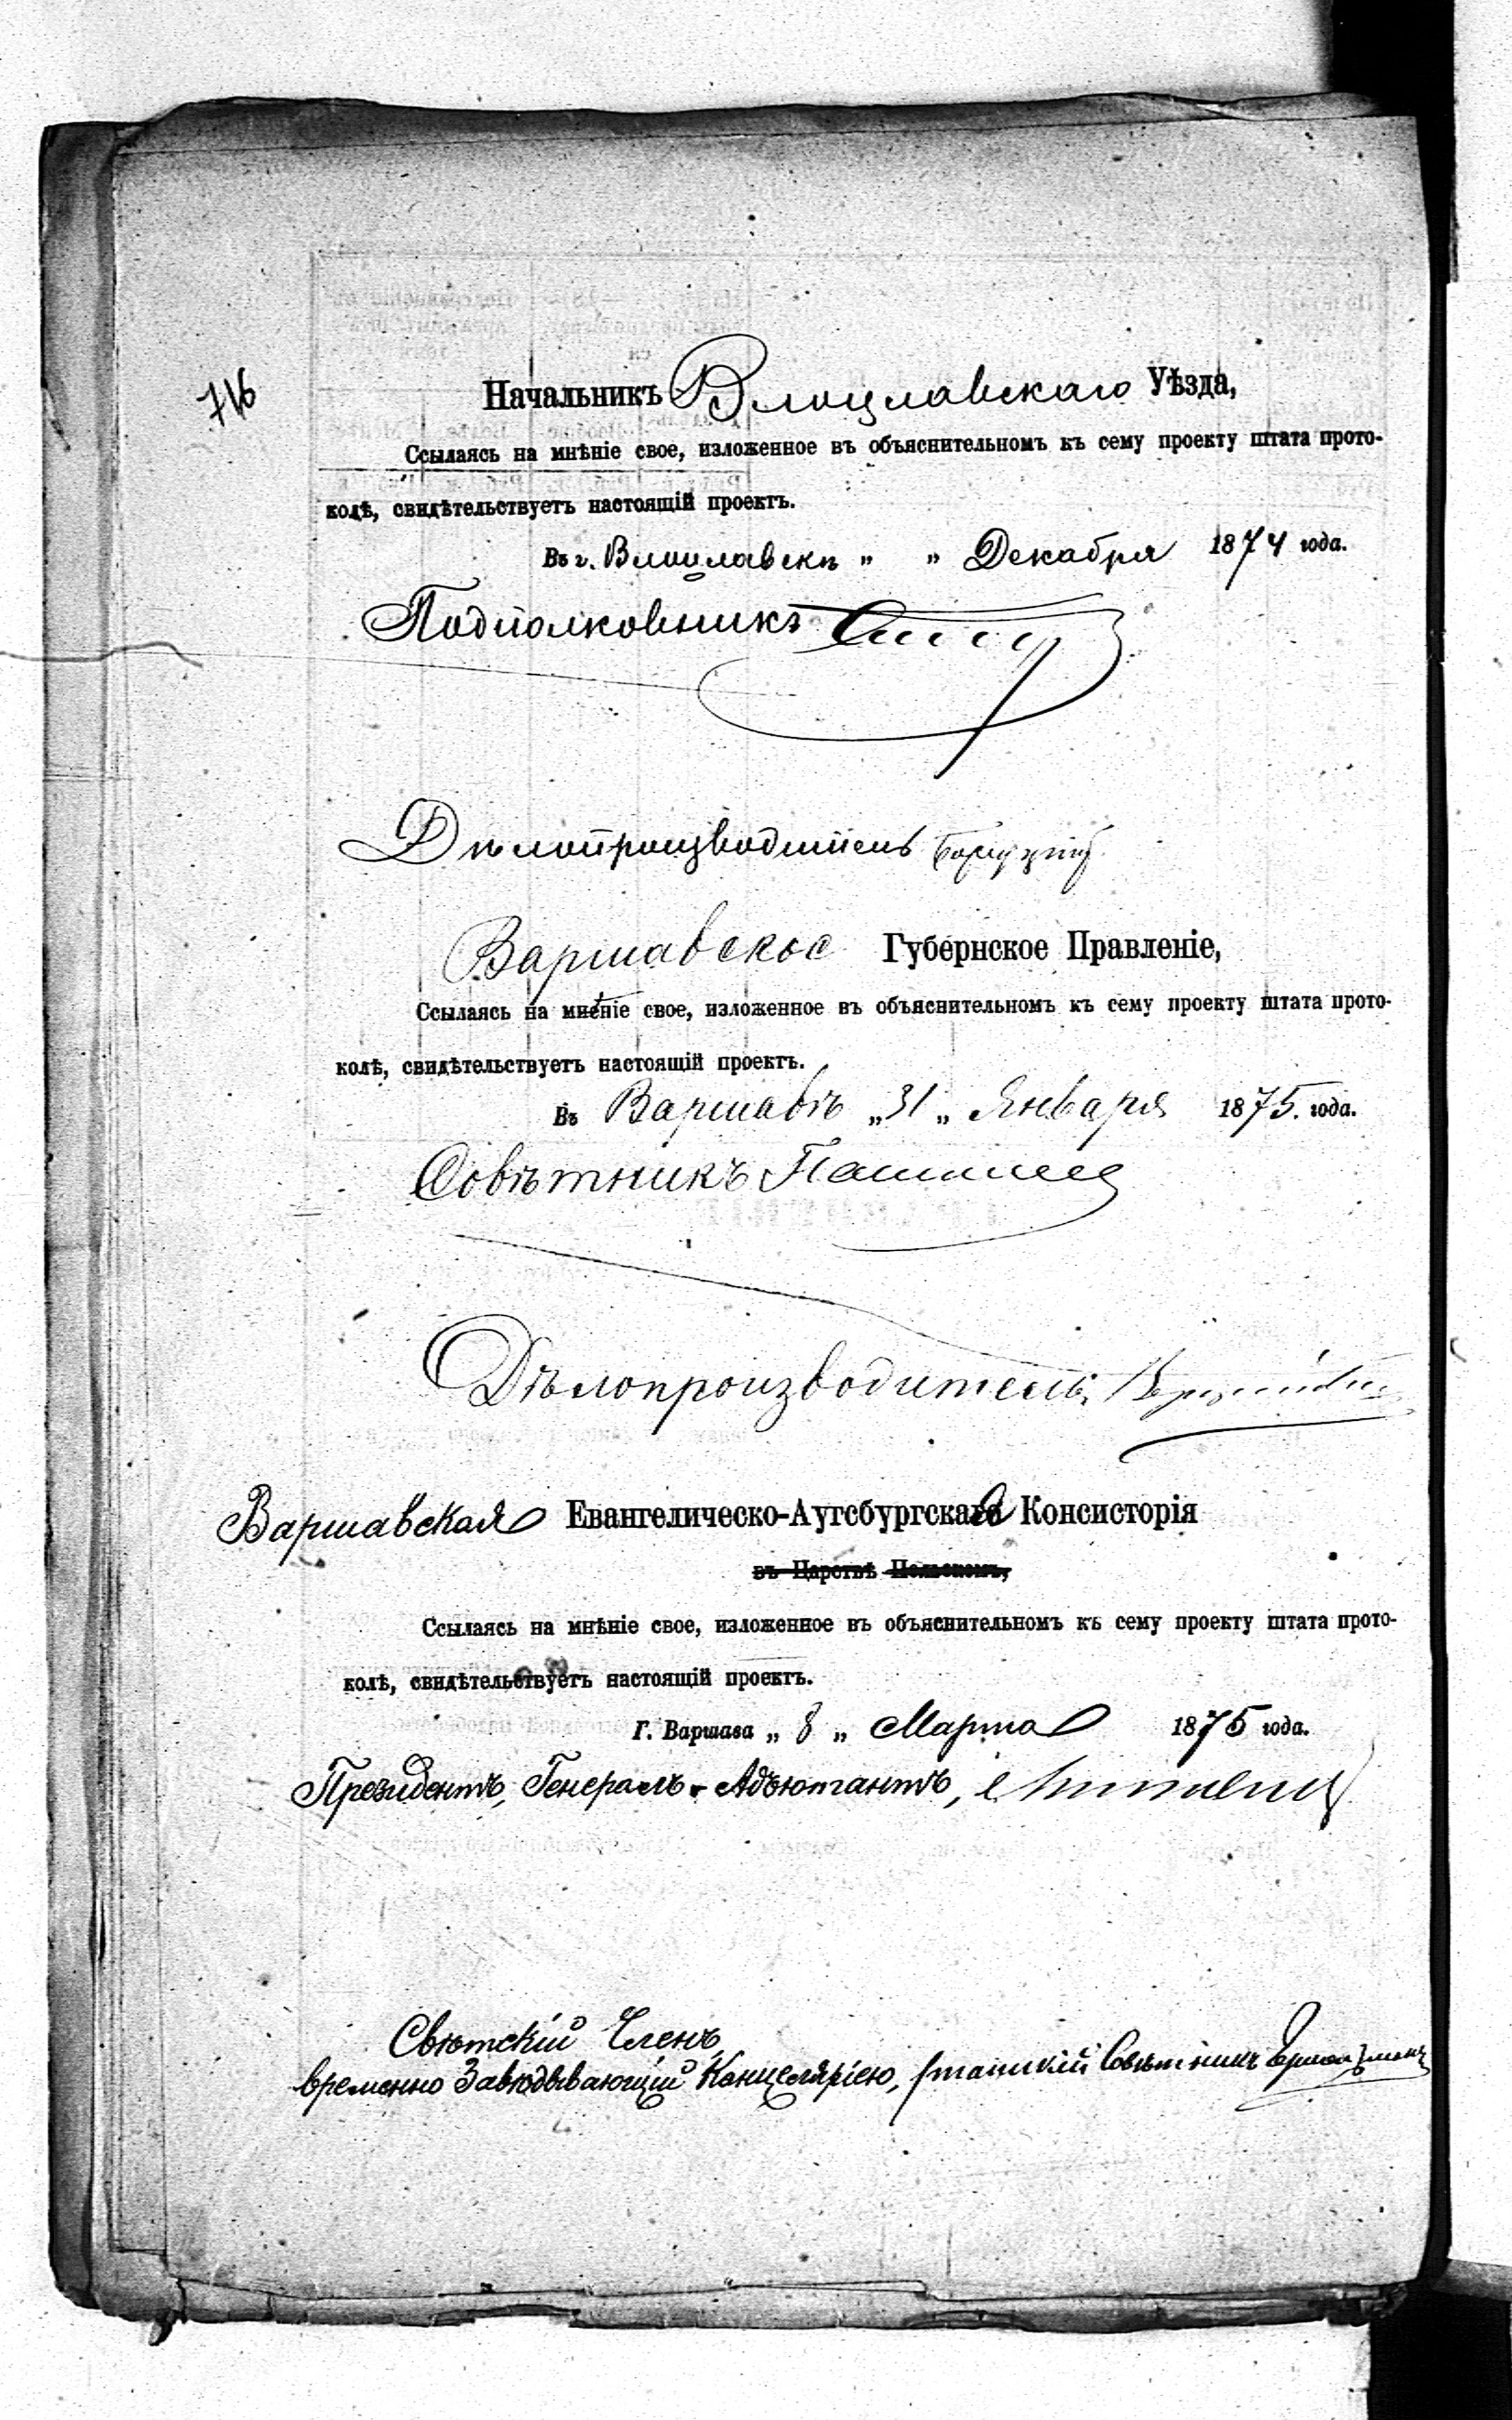 716
Начальникъ Влоцлавскаго Уѣзда,
Ссылаясь на мнѣніе свое, изложенное въ объяснительномъ къ сему проекту штата прото-
колѣ, свидѣтельствуетъ настоящій проектъ.
Въ г. Влоцлавскѣ „ „ Декабря 1874 года.
Подполковникъ
Дѣлопроизводитель
Варшавское Губернское Правленіе,
Ссылаясь на мнѣніе свое, изложенное въ объяснительномъ къ сему проекту штата прото-
колѣ, свидѣтельствуетъ настоящій проектъ.
Въ Варшавѣ „31„ Января 1875. года.
Совѣтникъ
Дѣлопроизводитель
Варшавская Евангелическо-Аугсбургская Консисторія
въ Царствѣ Польскомъ,
Ссылаясь на мнѣніе свое, изложенное въ объяснительномъ къ сему проекту штата прото-
колѣ, свидѣтельствуетъ настоящій проектъ.
Г. Варшава „ 8 „ Марта 1875 года.
Президентъ, Генералъ-Адъютантъ,
Свѣтскій Членъ,
временно Завѣдывающій Канцеляріею, Статскій Совѣтникъ